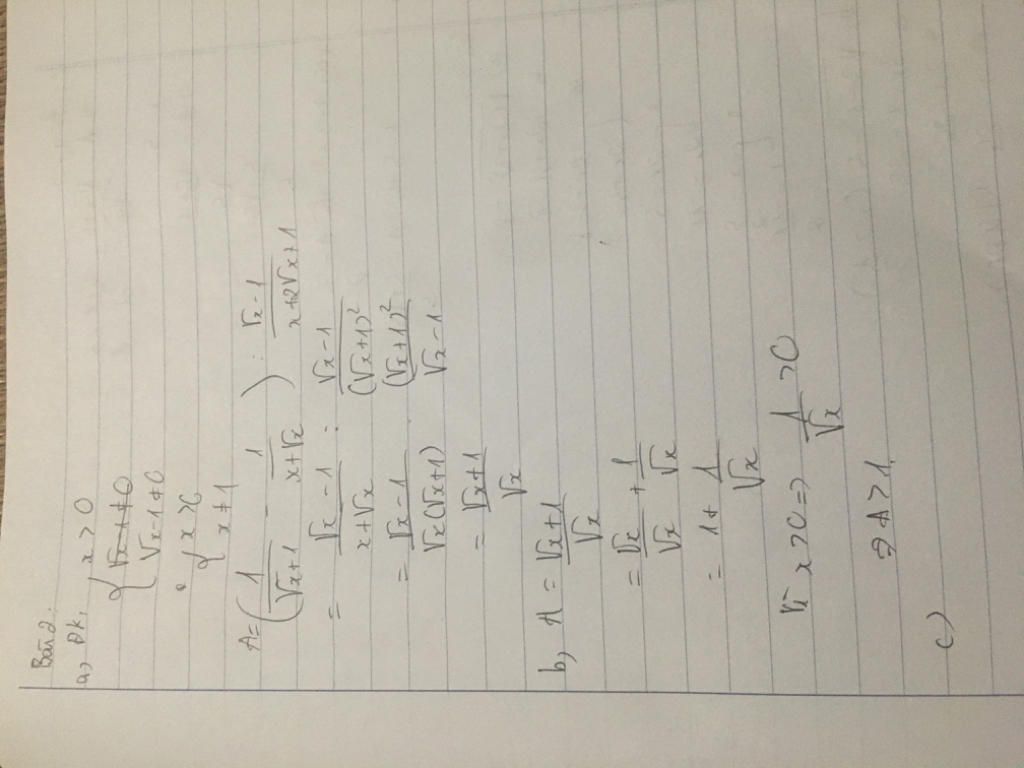 Bài 2:
a, ĐK: { x > 0
{ √x+1≠0
√x-1≠0
{ x>0
x≠1
A = (1/(√x+1) - 1/(x+√x)) : (√x-1)/(x+2√x+1)
= (√x-1)/(x+√x) : (√x-1)/(√x+1)²
= (√x-1)/(√x(√x+1)) · (√x+1)²/(√x-1)
= (√x+1)/√x
b, A = (√x+1)/√x
= √x/√x + 1/√x
= 1+ 1/√x
Vì x>0 => 1/√x >0
=> A>1
c)